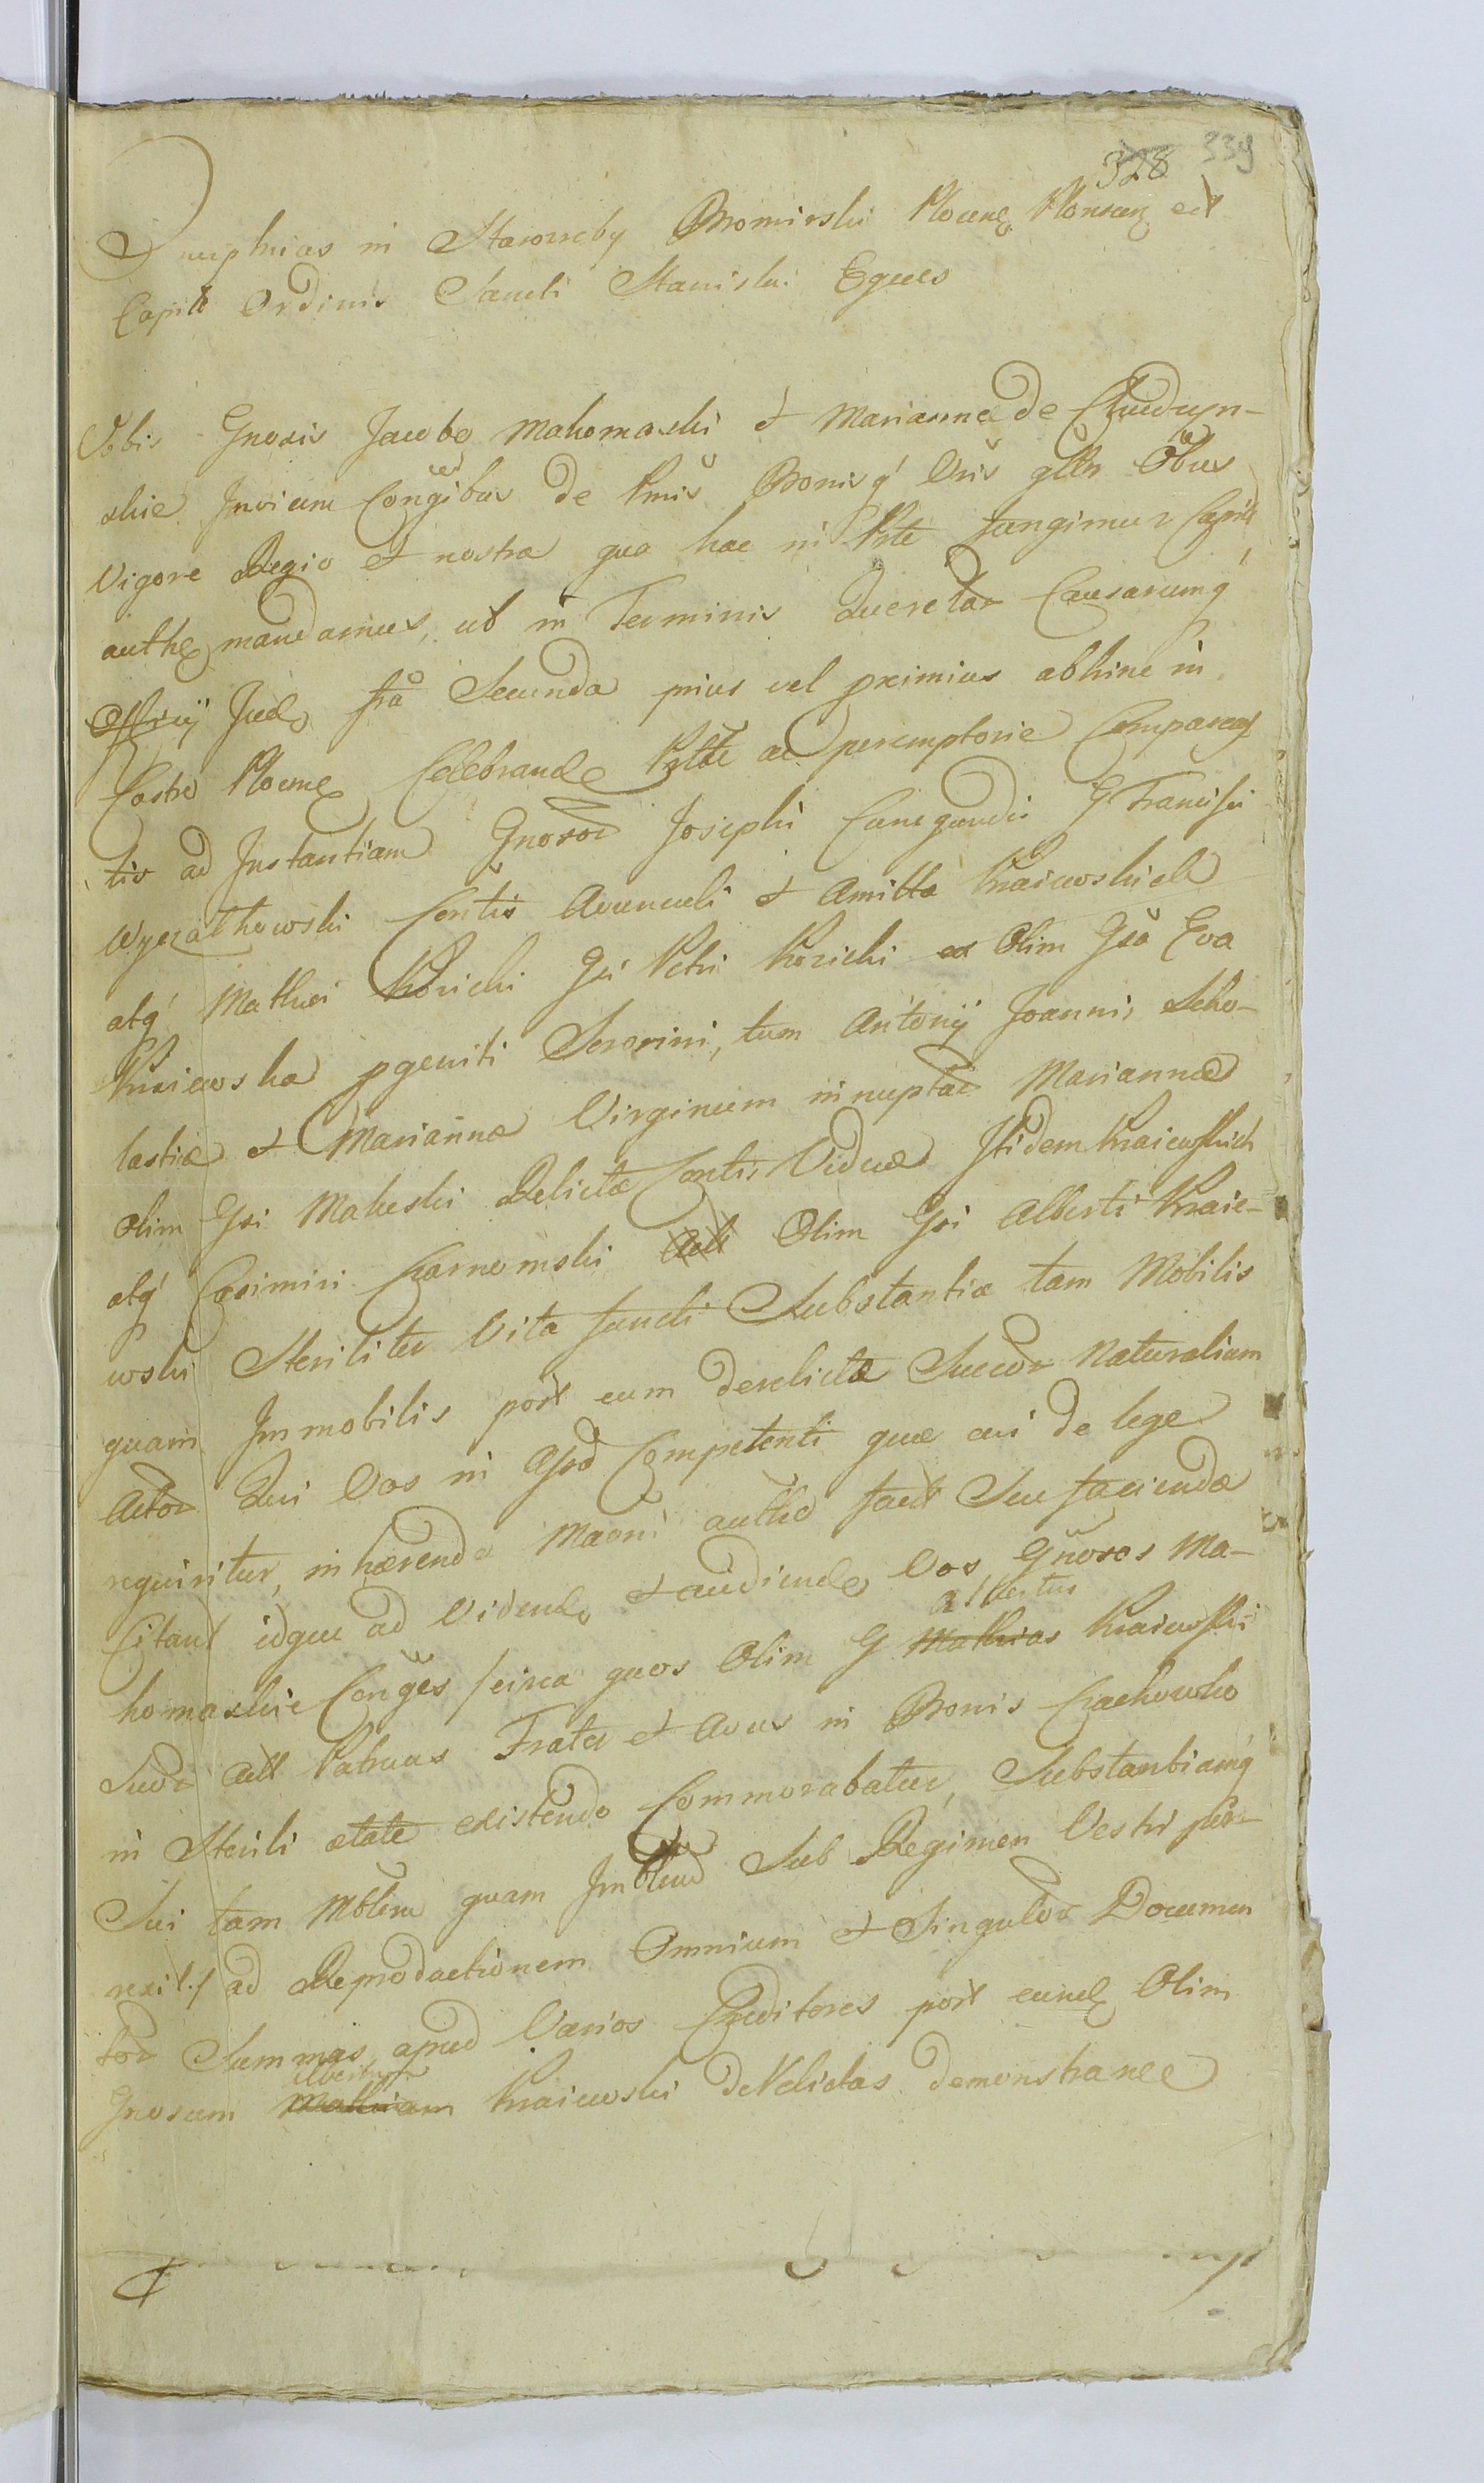 328 339
Onuphrius in Starozreby Bromirski Plocens Plonscen ect
Capite Ordinis Sancti Stanislai Eques
Vobis Gnosis Jacobo Makomaski et Marianna de Chudzyn-
skie Invicem Conğibus de Pmis Bonisq́ Vris gllr Obus
Vigore Regio et nostra qua hac in Prte fungimur Capit
authe mandamus, ut in Terminis Querelar Causarumq́
Officij Jud fra Secunda prius vel proximius abhinc in
Castro Plocens Celebrand Prlte ac peremptorie Comparea
tis ad Instantiam Gnosor Josephi Cunegundis G Francisci
Wyezalkowski Contis Avunculi et Amitta Kraiewskich
atq́ Mathei Kozicki Gsi Petri Kozicki ex Olim Gsa Eva
Kraiewska pgeniti Sororini, tum Antonij Joannis Scho-
lastica et Marianna Virginum innuptar Marianna
Olim Gsi Makeski Relicta Contis Vidua Itidem Kraiewskich
atq́ Casimiri Czarnomski Olim Gsi Alberti Kraie-
wski Steriliter Vita functi Substantia tam Mobilis
quam Immobilis post eum derelicta Succor Naturalium
Actor Qui Vos in Assa Competenti qua cui de lege
requiritur, inhærendo Maoni autho fact Seu faciendæ
Citant idque ad Videnđ et audienđ Vos Gnosos Ma-
komaskie Conğes /circa quos Olim G Mathias Albertus Kraiewski
Suor Act Patruus Frater et Avus in Bonis Czachowko
in Sterili ætate existendo Commorabatur, Substantiamq́
Sui tam Mblem quam Imblem Sub Regimen Vestri per-
rexit./ ad Reproductionem Omnium et Singulor Documen
tor Summas apud Varios Creditores post eund Olim
Gnosum Mathiam Albertum Kraiewski deRelictas demonstrance